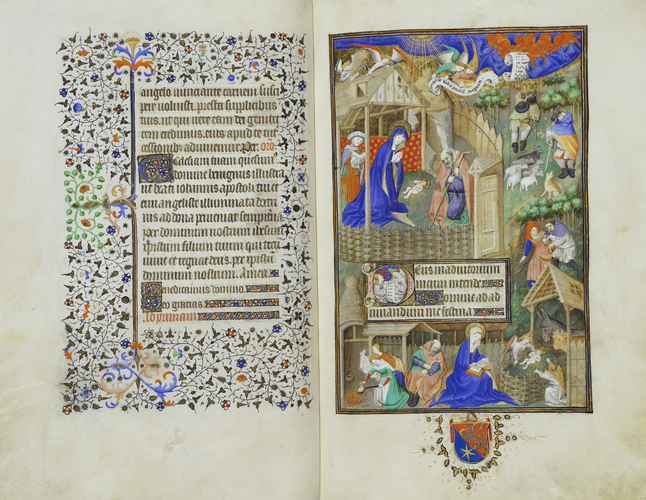 angelo nunciante carnem susci
pere voluisti. presta supplicibus
tuis. ut qui vere eam dei genitri
cem credimus. eius apud te in
tercessionibz adiuvemur. Per. oro
Ecclesiam tuam quesum
domine benignus illustra
ut beati iohannis apostoli tui et
evangeliste illuminata doctri
nis ad dona perveniat sempiterna.
Per dominum nostrum ihesum
xpistum filium tuum qui tecū
vivit et regnat deus. per
dominum nostrum. Amen
Benedicamus domino.
Deo gratias
Ad primam
Deus in adiutorium
meum intende
Domine ad ad
iuvandum me festina